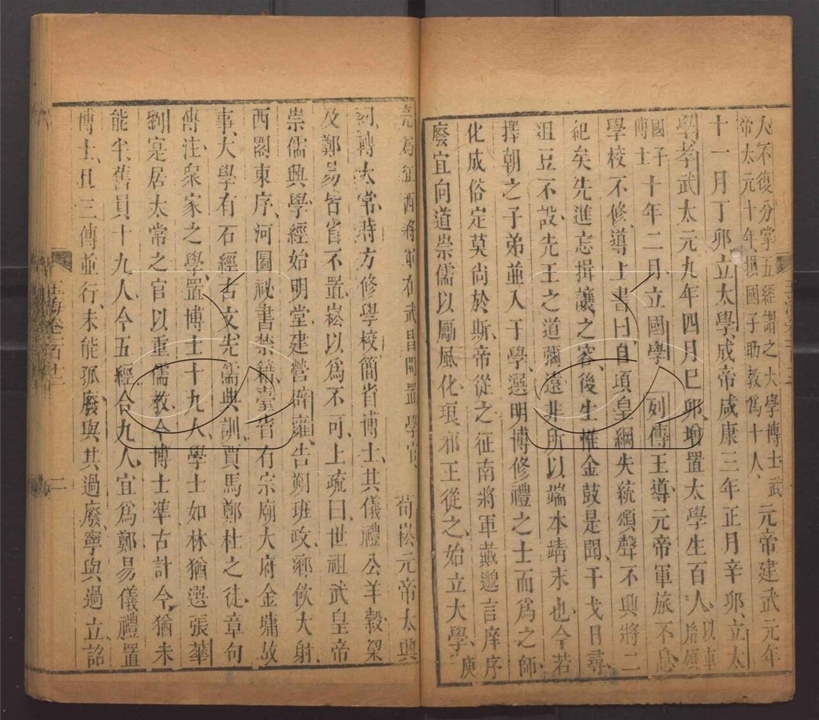 人不復分掌五經謂之太學博士武
帝太元十年損國子助教爲十人
元帝建武元年
十一月丁卯立太學成帝咸康三年正月辛卯立太
學孝武太元九年四月巳卯增置太學生百人以車
國子
博士
十年二月立國學
列傳王導元帝軍旅不息
學校不修導上書曰自頃皇綱失統頌聲不興將二
紀矣先進忘揖讓之容後生惟金鼓是聞干戈日尋
俎豆不設先王之道彌遠非所以端本靖末也今若
擇朝之子弟並入于學選明博修禮之士而爲之師
化成俗定莫尚於斯帝從之征南將軍戴邈言庠序
廢宜向道崇儒以勵風化琅邪王從之始立大學
庾
亮爲征西將軍在武昌開置學官
荀崧元帝太興
初轉太常時方修學校簡省博士其儀禮公羊穀梁
及鄭易皆省不置崧以爲不可上疏曰世祖武皇帝
崇儒興學經始明堂建營辟雍告朔班政鄉飲大射
西閣東序河圖祕書禁籍臺省有宗廟大府金墉故
事大學有石經古文先儒典訓賈馬鄭杜之徒章句
傳注衆家之學置博士十九人學士如林猶選張華
劉寔居太常之官以重儒教今博士準古計今猶未
能半舊員十九人今五經合九人宜爲鄭易儀禮置
博士且三傳並行未能孤廢與其過廢寧與過立詔
玉海卷一百十二
二